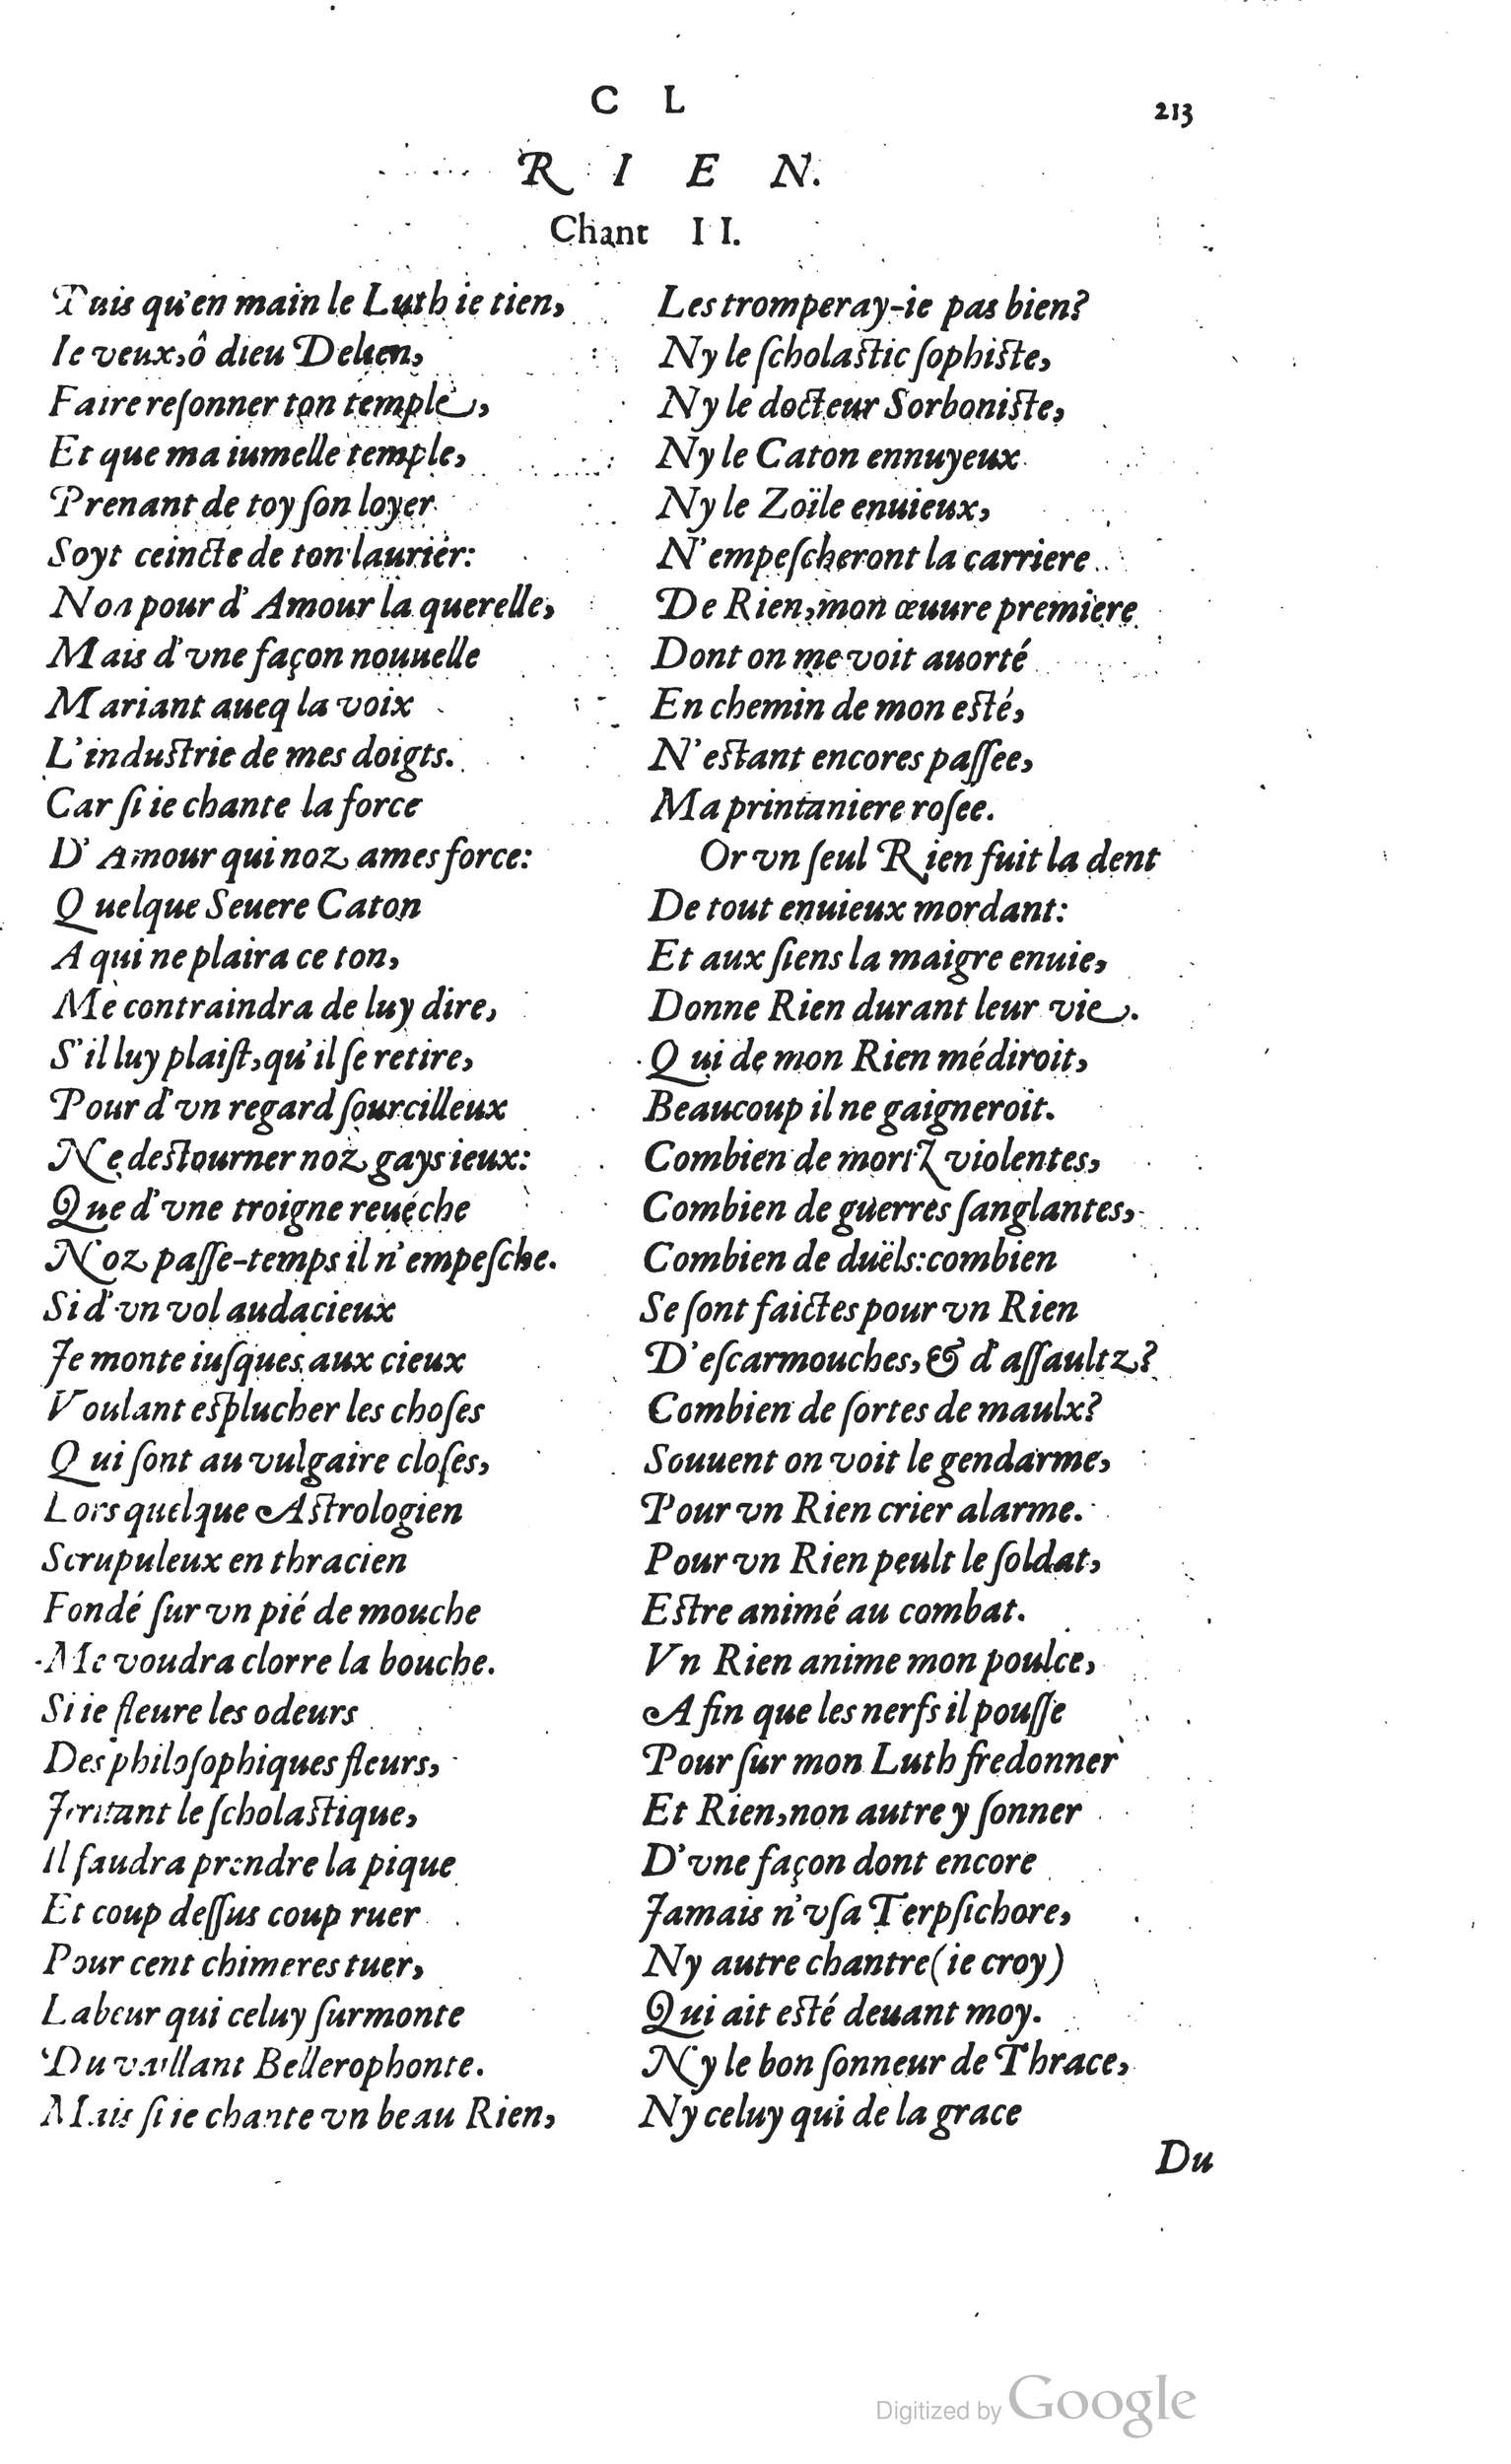 C L 213
RIEN.
Chant II.
Puis qu'en main le Luth ie tien,
Ie veux, ô dieu Delien,
Faire reſonner ton temple,
Et que ma iumelle temple,
Prenant de toy ſon loyer
Soyt ceincte de ton laurier:
Non pour d'Amour la querelle,
Mais d'vne façon nouuelle
Mariant aueq la voix
L'induſtrie de mes doigts.
Car ſi ie chante la force
D'Amour qui noz ames force:
Quelque Seuere Caton
A qui ne plaira ce ton,
Me contraindra de luy dire,
S'il luy plaiſt, qu'il ſe retire,
Pour d'vn regard ſourcilleux
Ne deſtourner noz gays ieux:
Que d'vne troigne reuéche
Noz paſſe-temps il n'empeſche.
Si d'vn vol audacieux
Je monte iuſques aux cieux
Voulant eſplucher les choſes
Qui ſont au vulgaire cloſes,
Lors quelque Aſtrologien
Scrupuleux en thracien
Fondé ſur vn pié de mouche
Me voudra clorre la bouche.
Si ie fleure les odeurs
Des philoſophiques fleurs,
Irritant le ſcholaſtique,
Il faudra prendre la pique
Et coup deſſus coup ruer
Pour cent chimeres tuer,
Labeur qui celuy ſurmonte
Du vaillant Bellerophonte.
Mais ſi ie chante vn beau Rien,
Les tromperay-ie pas bien?
Ny le ſcholaſtic ſophiſte,
Ny le docteur Sorboniſte,
Ny le Caton ennuyeux
Ny le Zoïle enuieux,
N'empeſcheront la carriere
De Rien, mon œuure premiere
Dont on me voit auorté
En chemin de mon eſté,
N'eſtant encores paſſee,
Ma printaniere roſee.
Or vn ſeul Rien fuit la dent
De tout enuieux mordant:
Et aux ſiens la maigre enuie,
Donne Rien durant leur vie.
Qui de mon Rien médiroit,
Beaucoup il ne gaigneroit.
Combien de mortz violentes,
Combien de guerres ſanglantes,
Combien de duëls: combien
Se ſont faictes pour vn Rien
D'eſcarmouches, & d'aſſaultz?
Combien de ſortes de maulx?
Souuent on voit le gendarme,
Pour vn Rien crier alarme.
Pour vn Rien peult le ſoldat,
Eſtre animé au combat.
Vn Rien anime mon poulce,
Afin que les nerfs il pouſſe
Pour ſur mon Luth fredonner
Et Rien, non autre y ſonner
D'vne façon dont encore
Jamais n'vſa Terpſichore,
Ny autre chantre (ie croy)
Qui ait eſté deuant moy.
Ny le bon ſonneur de Thrace,
Ny celuy qui de la grace
Du
Digitized by Google